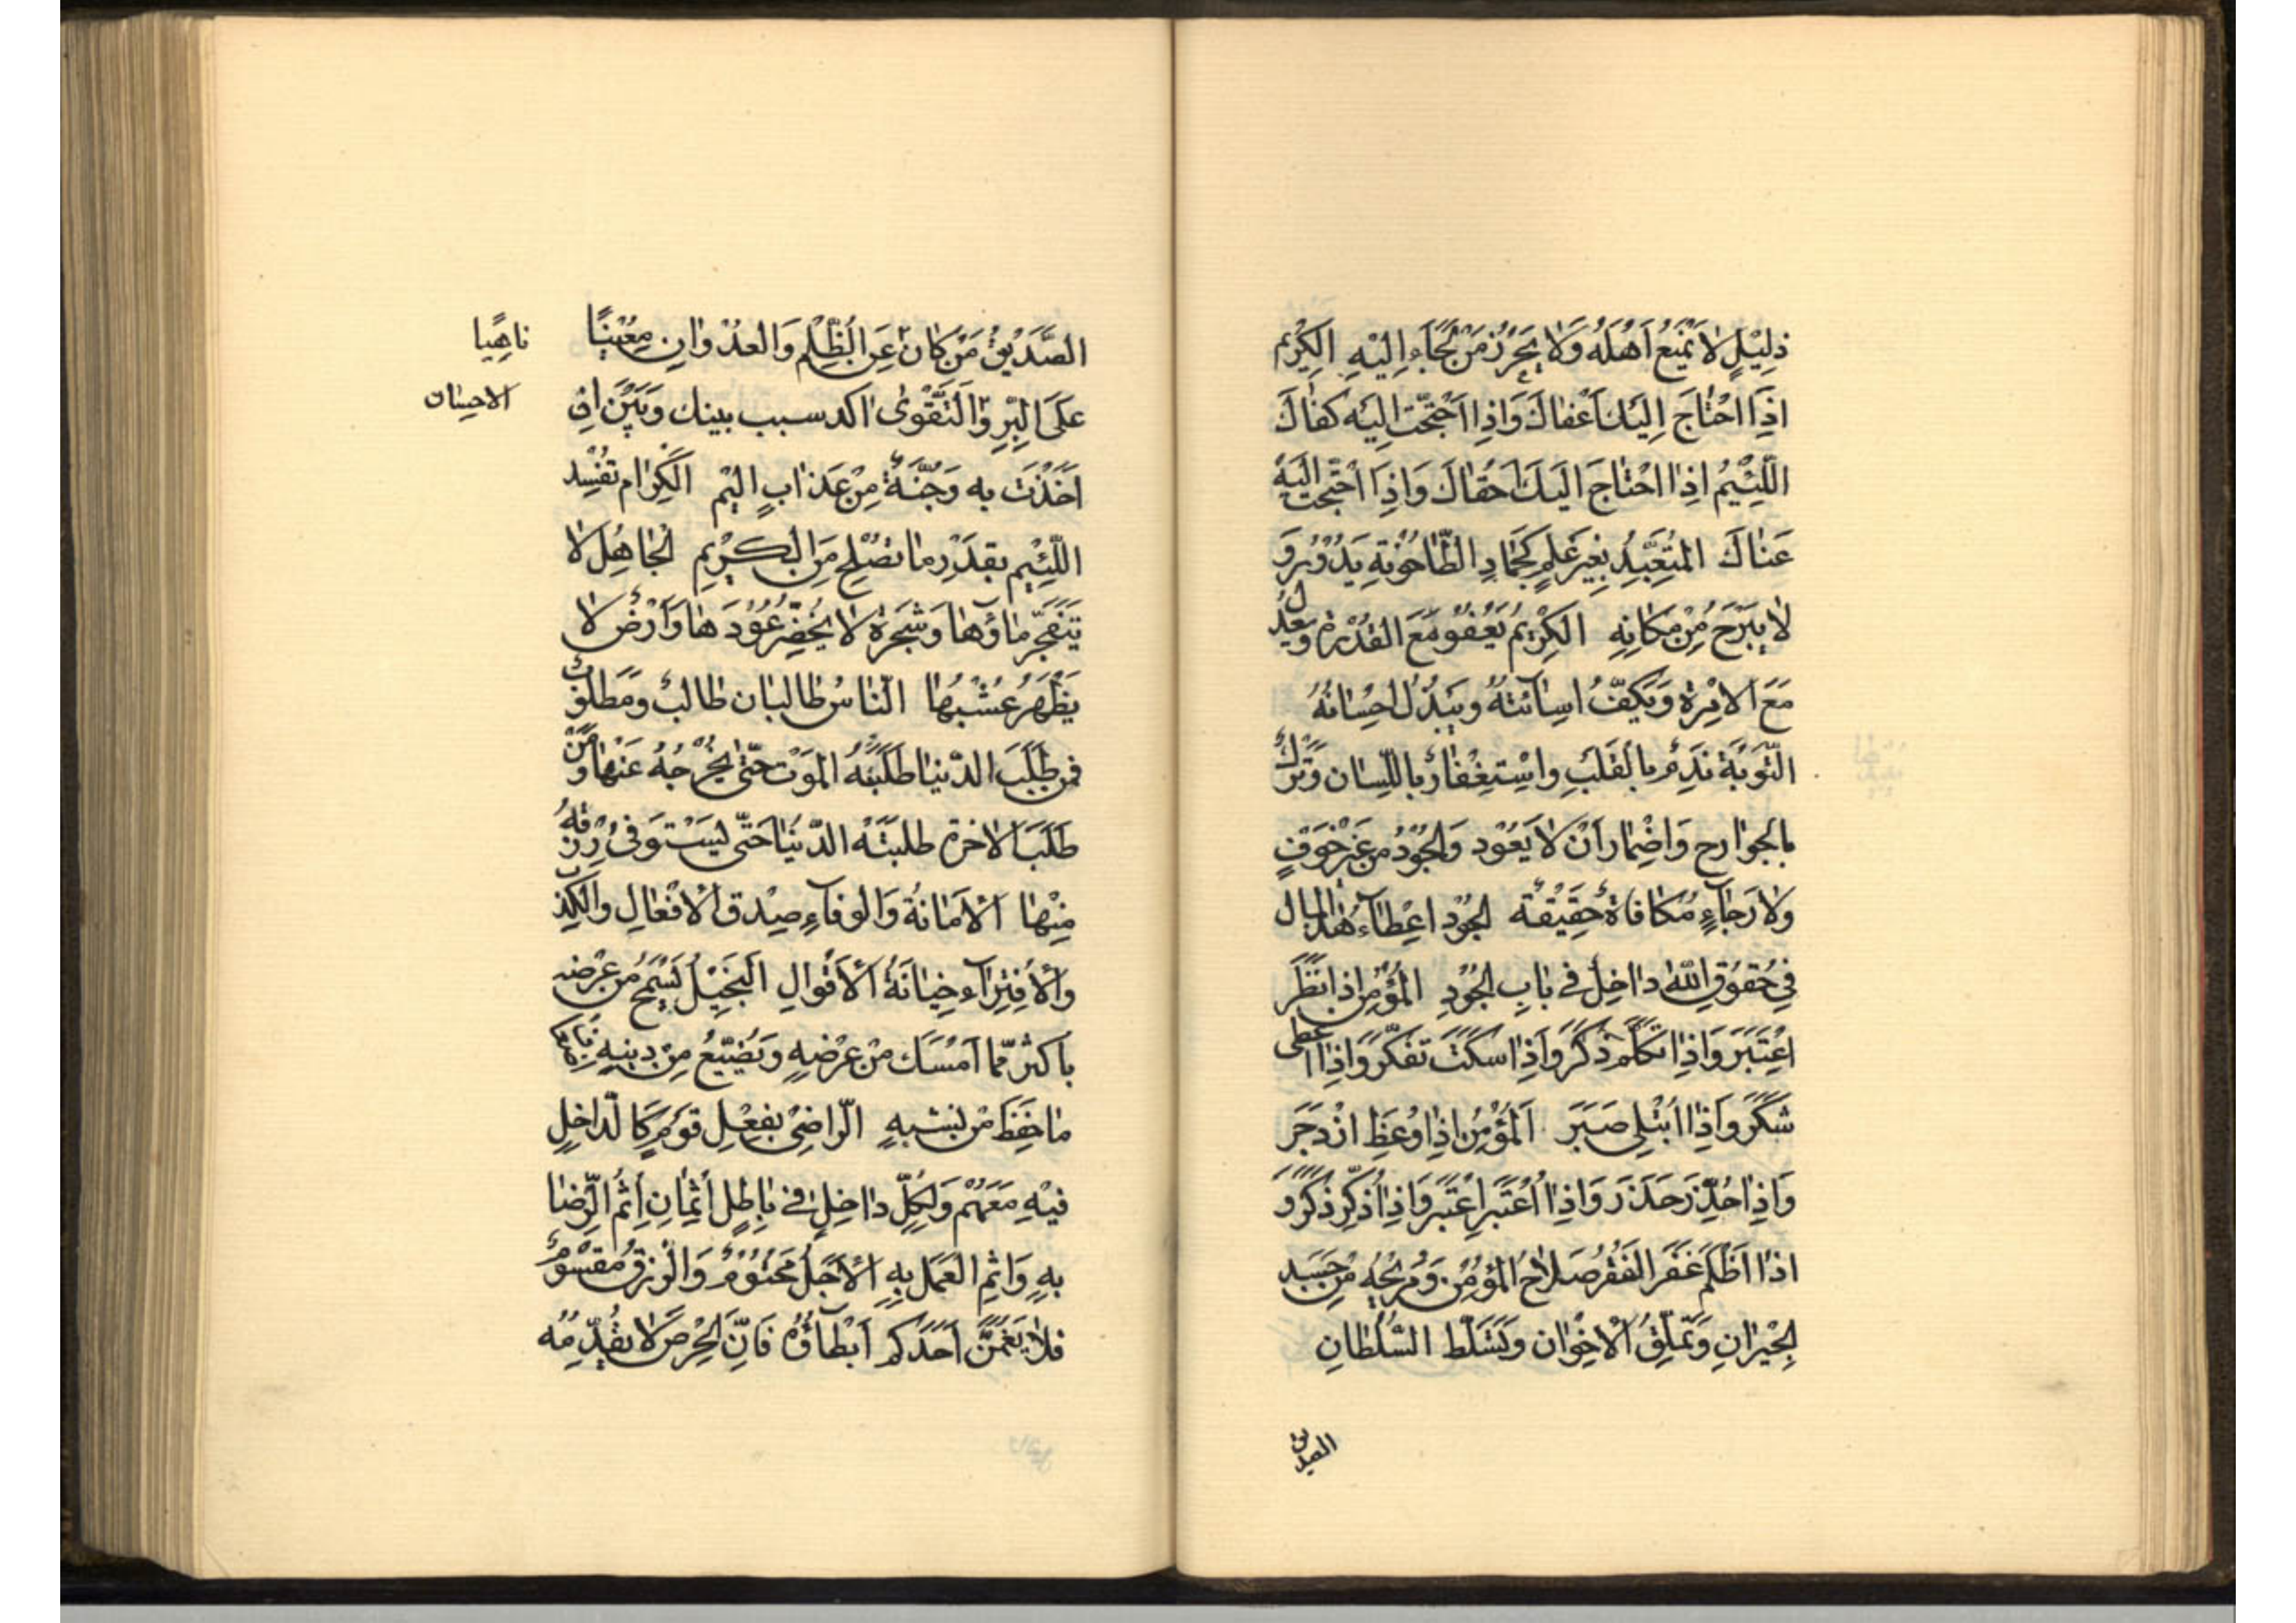 ذَلِيْلٍ لَا يَمْنَعُ اَهْلَهُ وَلَا يُحْرِزُ مَنْ لَجَاءَ اِلَيْهِ الكَرِيْم
اِذَا احْتَاجَ اِلَيْكَ اَعْفَاكَ وَاِذَا احْتَجْتَ اِلَيْهِ كَفَاكَ
اللَّئِيْمُ اِذَا احْتَاجَ اِلَيْكَ اَحْفَاكَ وَاِذَا احْتَجْتَ اِلَيْهِ
عَنَاكَ المُتَعَبِّدُ بِغَيْرِ عِلْمٍ كَحِمَارِ الطَّاحُوْنَةِ يَدُوْرُ وَ
لَا يَبْرَحُ مِنْ مَكَانِهِ الكَرِيْمُ يَعْفُو مَعَ القُدْرَةِ وَيَعْدِلُ
مَعَ الاِمْرَةِ وَيَكُفُّ اِسَائَتَهُ وَيَبْذُلُ اِحْسَانَهُ
التَّوْبَةُ نَدَمٌ بِالقَلْبِ وَاسْتِغْفَارٌ بِاللِّسَان وَتَرْكٌ
بِالجَوَارِح وَاِضْمَار اَنْ لَا يَعُوْد وَالجُوْدُ مِنْ غَيْرِ خَوْفٍ
وَلَا رَجَاءِ مُكَافَاةٍ حَقِيْقَةُ الجُوْدِ اِعْطَاءُ هٰذَا المَال
فِي حُقُوْقِ اللهِ دَاخِلٌ فِي بَابِ الجُوْدِ المُؤْمِنُ اِذَا نَظَرَ
اعْتَبَرَ وَاِذَا تَكَلَّمَ ذَكَرَ وَاِذَا سَكَتَ تَفَكَّرَ وَاِذَا اعطى
شَكَرَ وَاِذَا ابْتُلِيَ صَبَرَ اَلْمُؤْمِنُ اِذَا وُعِظَ ازْدَجَرَ
وَاِذَا حُذِّرَ حَذِرَ وَاِذَا اُعْتُبِرَ اعْتَبَرَ وَاِذَا اُذكِّرَ ذَكَرَ وَ
اِذَا اظْلِمَ غَفَرَ الفَقْرُ صَلَاحُ المُؤْمِنِ وَمُرِيْحُهُ مِنْ حَسَدِ
الجِيْرَانِ وَتَمَلُّقِ الاِخْوَان وَتَسَلُّط السُّلْطَانِ
الصديق
الصِّدِيْقُ مَنْ كَانَ عَنِ الظُّلْمِ وَالعُدْوَانِ مُعِيْنًا ناهيا
عَلَى البِرِّ وَالتَّقْوٰى اكد سبب بينك وَبَيْنَ اللهِ الاحسان
اَخَذْتَ بِه وَجُنَّةٌ مِنْ عَذَابٍ اَلِيْم الكِرَام تُفْسِد
اللَّئِيْم بِقَدْرِ مَا تُصْلِح مِنَ الكَرِيْمِ الجَاهِلُ لَا
يَتَفَجَّرُ مَاؤُهَا وَشَجَرَةٌ لَا يَخْضَرُّ عُوْدُهَا وَاَرْضٌ لَا
يَظْهَرُ عُشْبُهَا النَّاسُ طَالِبَان طَالِبٌ وَمَطْلُوْبٌ
فَمَنْ طَلَبَ الدُّنْيَا طَلَبَهُ المَوْت حَتّٰى يُخْرِجَهُ عَنْهَا وَمَنْ
طَلَبَ الاٰخِرَةَ طَلَبَتْهُ الدُّنْيَا حَتّٰى يَسْتَوْفِىَ رِزْقَهُ
مِنْهَا اَلْاَمَانَةُ وَالوَفَاءِ صِدْق الْاَفْعَالِ وَالْكِذْبُ
وَالْاِفْتِرَاءُ خِيَانَةُ الْاَقْوَالِ البَخِيْلُ يَسْمَحُ مِنْ عِرْضِه
بِاَكْثَر مِمَّا اَمْسَكَ مِنْ عِرْضِهِ وَيُضَيِّعُ مِنْ دِيْنِهِ
مَا حَفِظَ مِنْ نَشَبِهِ الرَّاضِيْ بِفِعْلِ قَوْمٍ كَالدَّاخِلِ
فِيْهِ مَعَهُمْ وَلِكُلِّ دَاخِلٍ فِي بَاطِلٍ اِثْمَانِ اِثْمُ الرِّضَا
بِهِ وَاِثْمُ العَمَلِ بِهِ اَلْاَجَلُ مَحْتُوْمٌ وَالرِّزْقُ مَقْسُوْمٌ
فَلَا يَغُمَّنَّ اَحَدَكُمْ اِبْطَاؤُهُ فَاِنَّ الحِرْصَ لَا يُقَدِّمُهُ